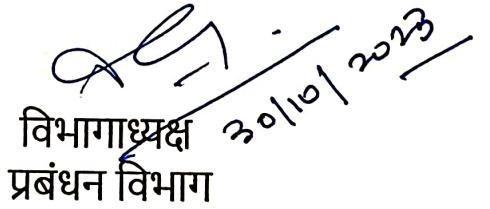 30/10/2023
विभागाध्यक्ष
प्रबंधन विभाग